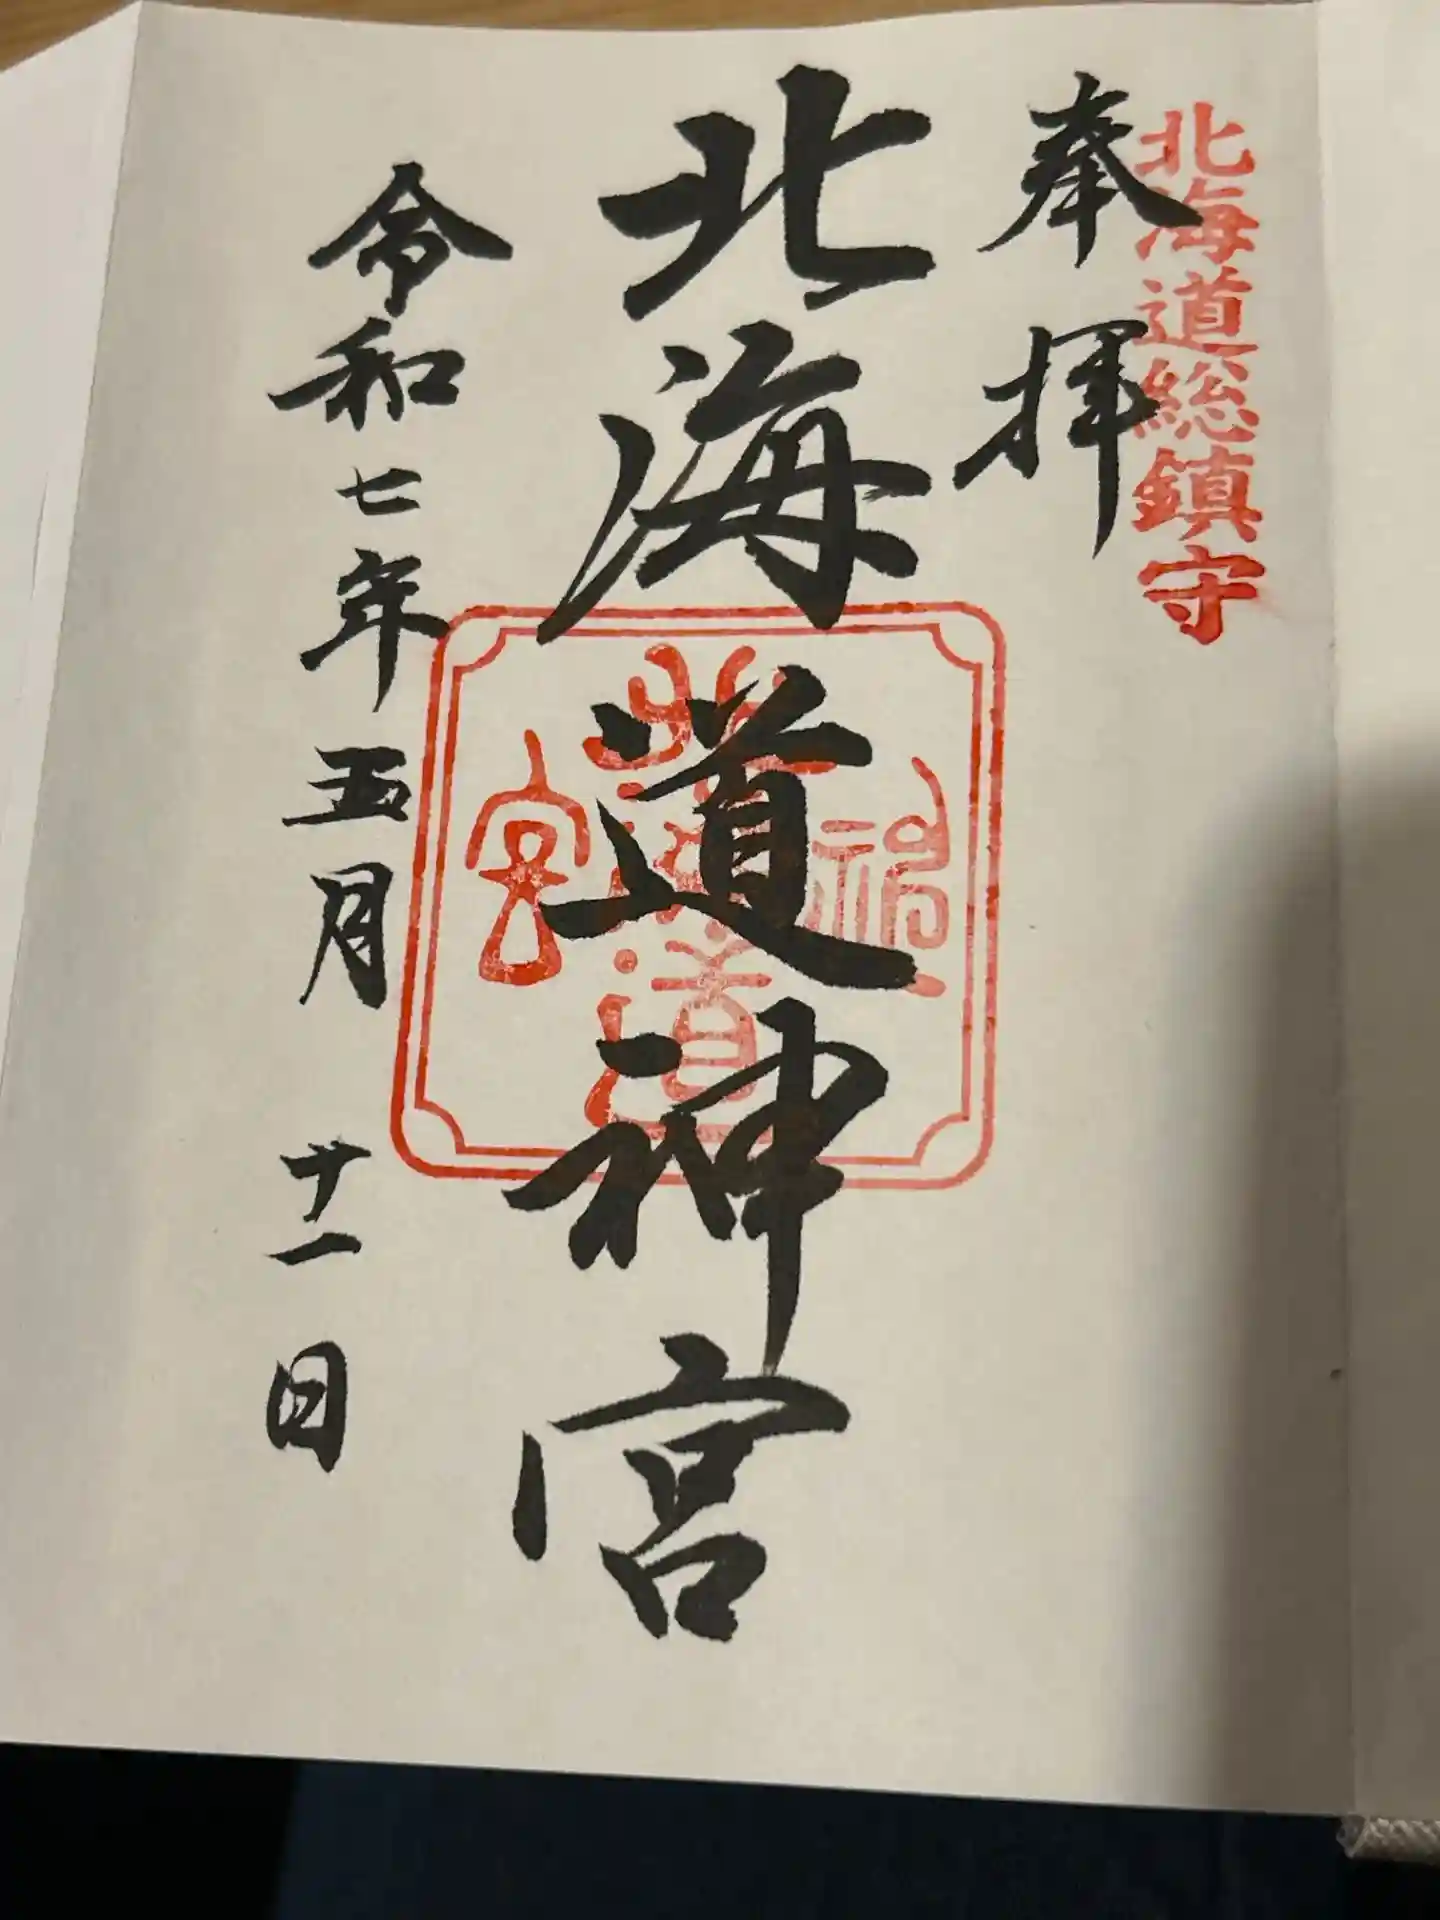 北海道総鎮守
奉拝
北海道神宮
北海道神宮
令和七年五月廿一日